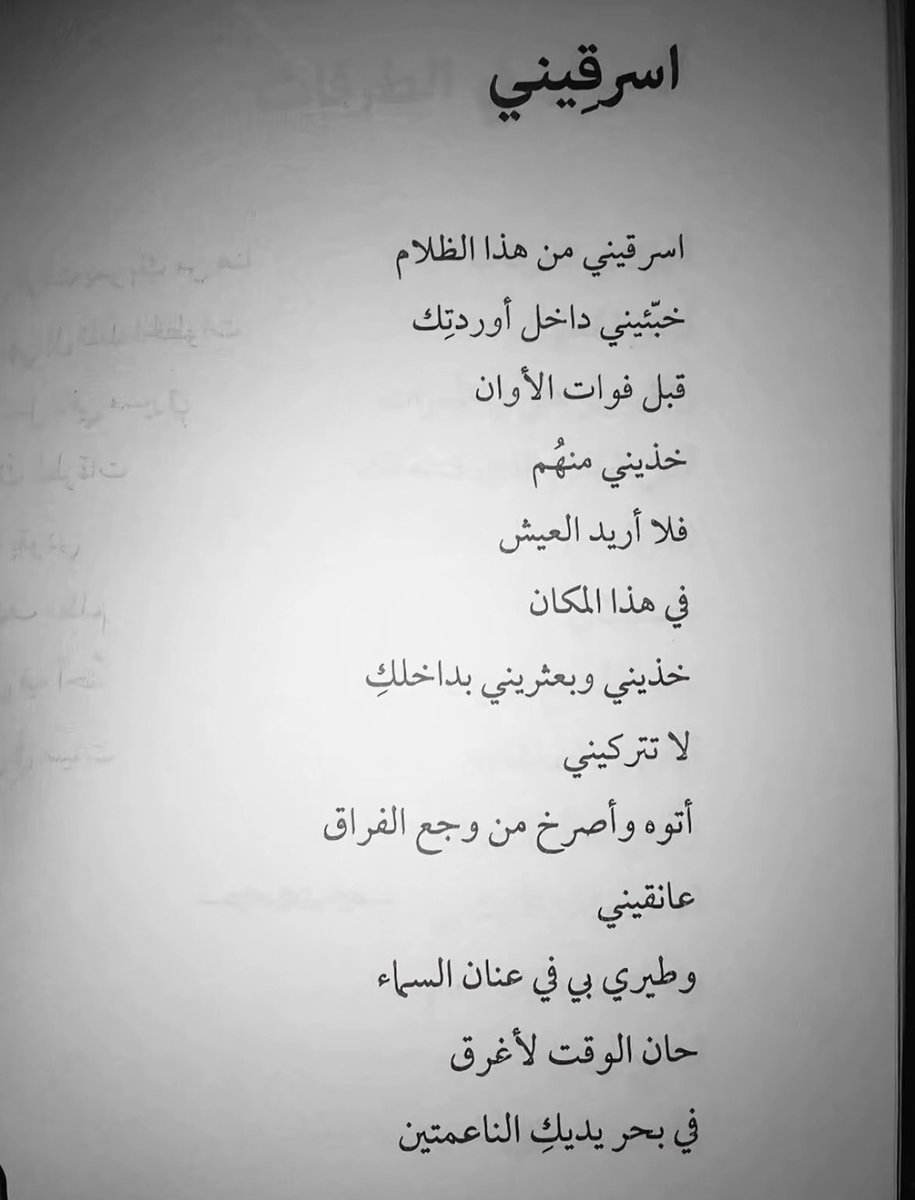 اسرقِيني
اسرقيني من هذا الظلام
خبّئيني داخل أوردتِك
قبل فوات الأوان
خذيني منهُم
فلا أريد العيش
في هذا المكان
خذيني وبعثريني بداخلكِ
لا تتركيني
أتوه وأصرخ من وجع الفراق
عانقيني
وطيري بي في عنان السماء
حان الوقت لأغرق
في بحر يديكِ الناعمتين